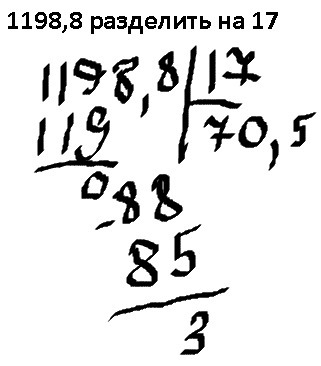 1198,8 разделить на 17
1198,8 17
119 70,5
0
-88
85
3